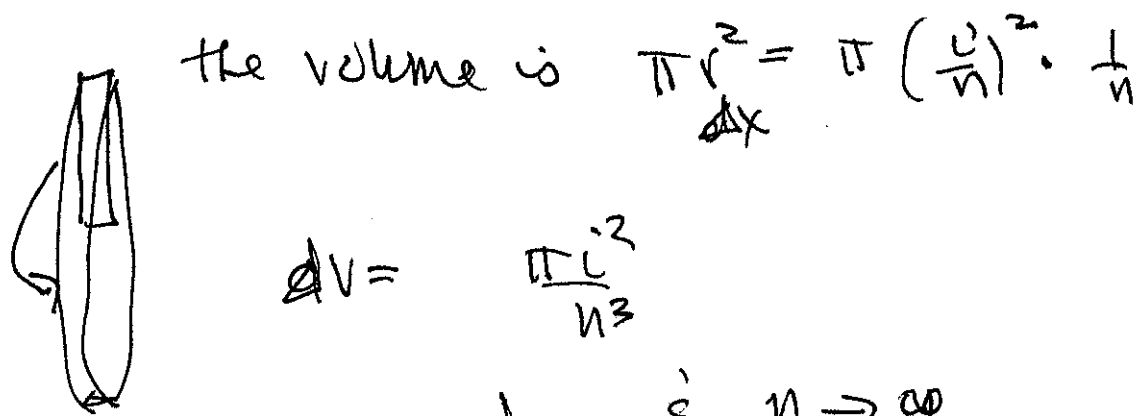 the volume is πr² = π (i/n)² · 1/n
Δx
dV = πi²/n³
n → ∞